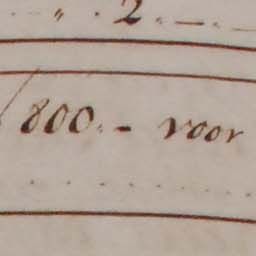 " . 2 . – . –
800. – voor